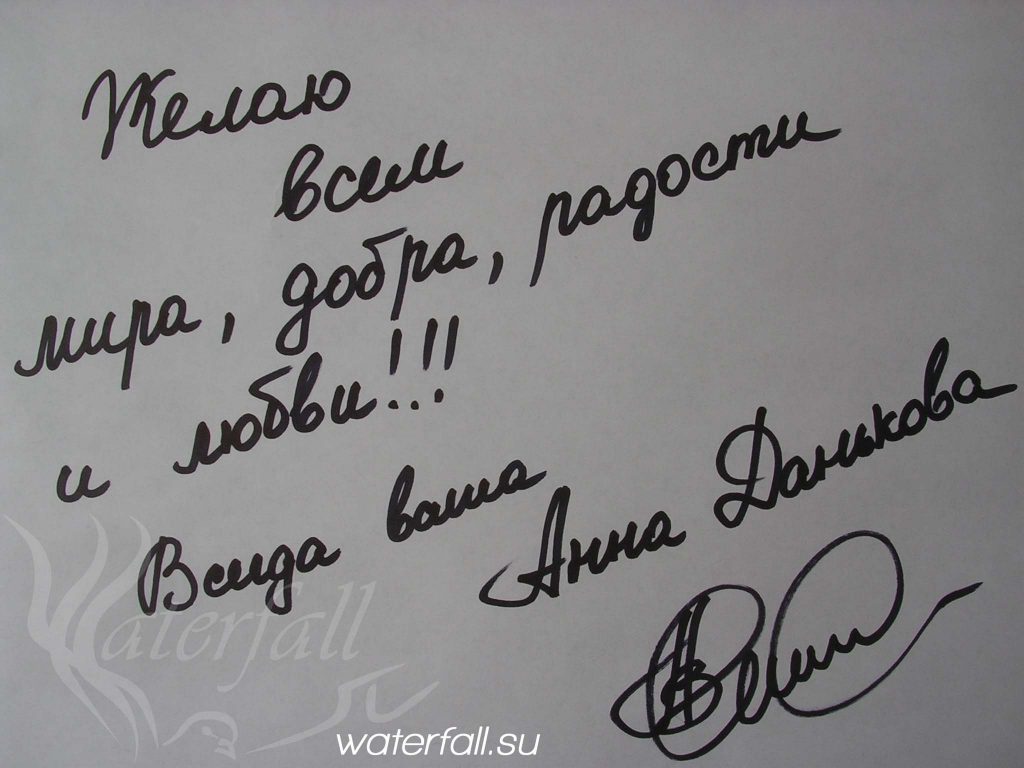 Желаю
всем
мира, добра, радости
и любви!!!
Всегда ваша
Анна Данькова
Waterfall
waterfall.su